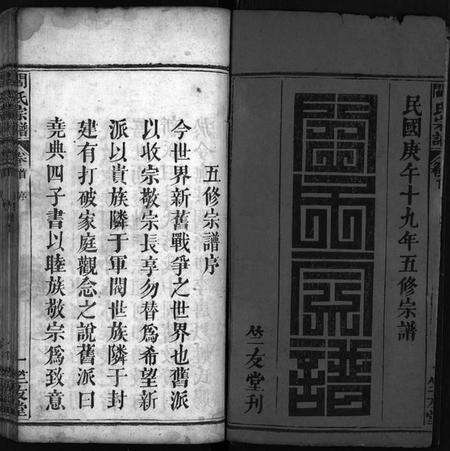 民國庚午十九年五修宗譜
竺友堂刊
五修宗譜序
今世界新舊戰爭之世界也舊派
以收宗敬宗長享勿替爲希望新
派以貴族隣于軍閥世族隣于封
建有打破家庭觀念之說舊派曰
堯典四子書以睦族敬宗爲致意
氏宗譜
卷首
序
一
竺友堂